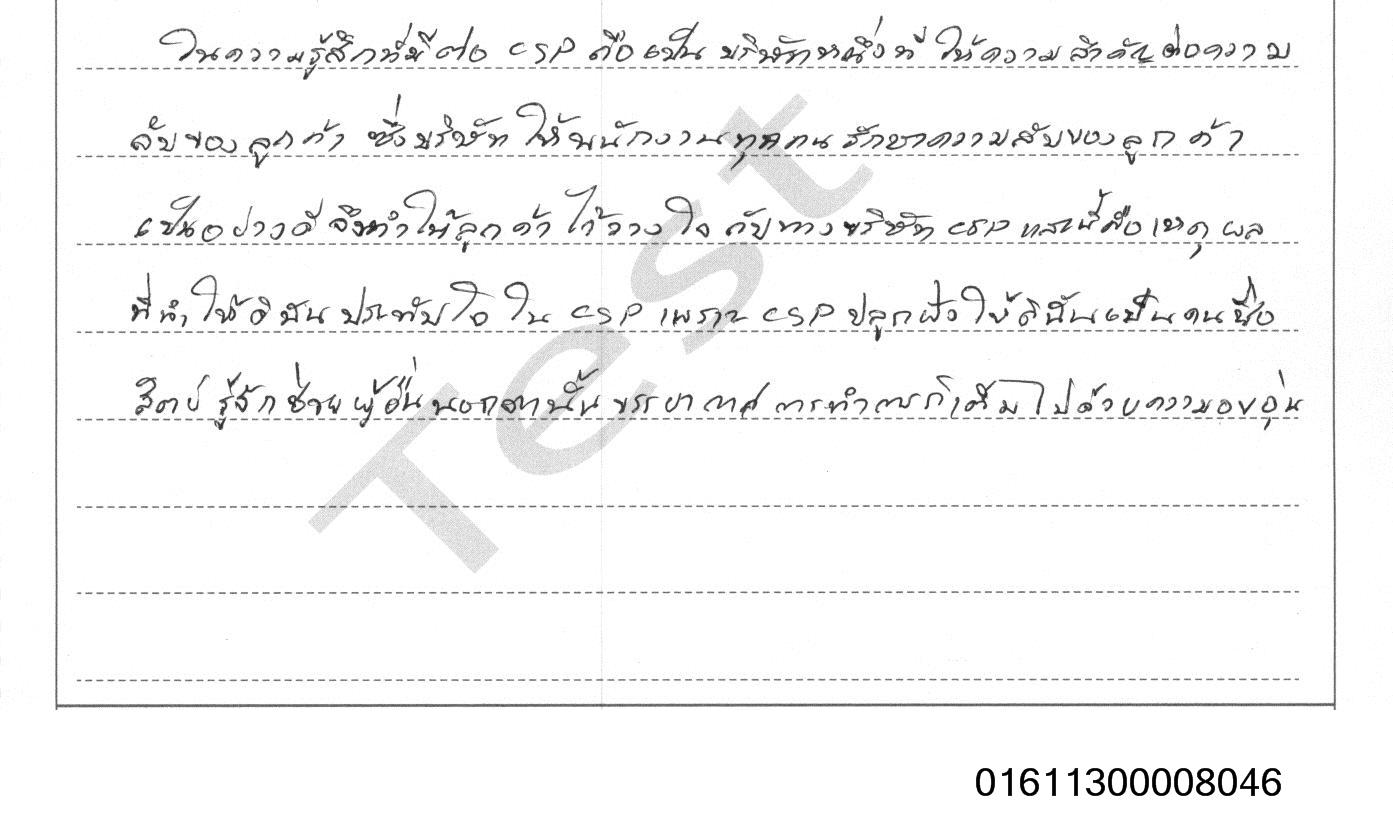 ในความรู้สึกที่มีต่อ CSP คือเป็น บริษัทหนึ่งที่ ให้ความ สำคัญ ต่อความ
ลับของ ลูกค้า ซึ่งบริษัท ให้พนักงานทุกคน รักษาความลับของลูกค้า
เป็นอย่างดี จึงทำให้ลูกค้า ไว้วางใจ กับทางบริษัท CSP และนี้คือ เหตุผล
ที่ทำให้ดิฉันประทับใจ ใน CSP เพราะ CSP ปลูกฝัง ให้ดิฉันเป็นคนซื่อ
สัตย์ รู้จักช่วยผู้อื่น นอกจากนั้น บรรยากาศ การทำงานก็เต็มไปด้วยความอบอุ่น
Test
01611300008046